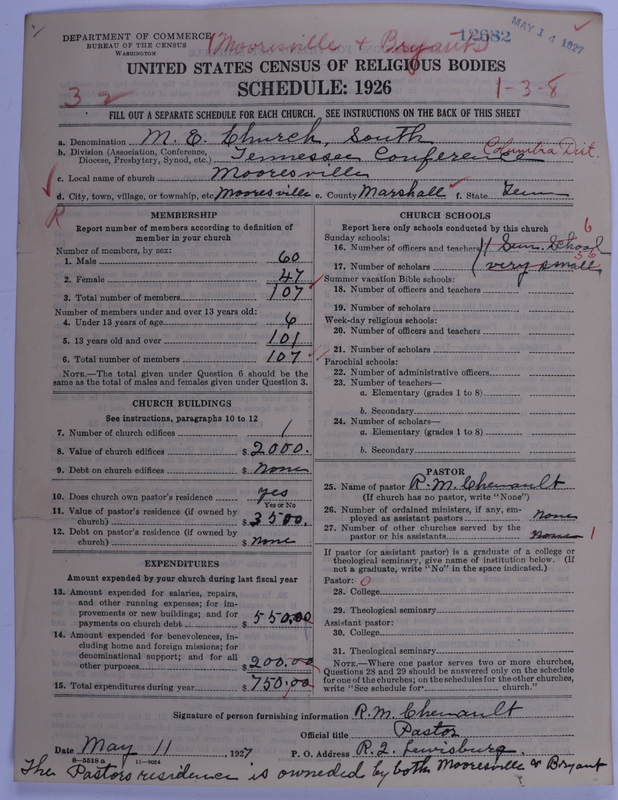 DEPARTMENT OF COMMERCE
BUREAU OF THE CENSUS
WASHINGTON
Mooresville & Bryant
12682
MAY 14 1927
UNITED STATES CENSUS OF RELIGIOUS BODIES
SCHEDULE: 1926
1-3-8
3 2
FILL OUT A SEPARATE SCHEDULE FOR EACH CHURCH. SEE INSTRUCTIONS ON THE BACK OF THIS SHEET
a. Denomination M. E. Church, South
b. Division (Association, Conference, Diocese, Presbytery, Synod, etc.) Tennessee Conference Columbia Dist.
c. Local name of church Mooresville
d. City, town, village, or township, etc. Mooresville e. County Marshall f. State Tenn
R
MEMBERSHIP
Report number of members according to definition of
member in your church
Number of members, by sex:
1. Male 60
2. Female 47
3. Total number of members 107
Number of members under and over 13 years old:
4. Under 13 years of age 6
5. 13 years old and over 101
6. Total number of members 107
NOTE.—The total given under Question 6 should be
same as the total of males and females given under Question 3.
CHURCH BUILDINGS
See instructions, paragraphs 10 to 12
7. Number of church edifices 1
8. Value of church edifices $ 2000.
9. Debt on church edifices $ None
10. Does church own pastor's residence yes
Yes or No
11. Value of pastor's residence (if owned by
church) $ 3500.
12. Debt on pastor's residence (if owned by
church) $ None
EXPENDITURES
Amount expended by your church during last fiscal year
13. Amount expended for salaries, repairs,
and other running expenses; for im-
provements or new buildings; and for
payments on church debt $ 550.00
14. Amount expended for benevolences, in-
cluding home and foreign missions; for
denominational support; and for all
other purposes $ 200.00
15. Total expenditures during year $ 750.00
CHURCH SCHOOLS
Report here only schools conducted by this church
Sunday schools:
16. Number of officers and teachers 1 Sun. School 6
17. Number of scholars very small 56
Summer vacation Bible schools:
18. Number of officers and teachers
19. Number of scholars
Week-day religious schools:
20. Number of officers and teachers
21. Number of scholars
Parochial schools:
22. Number of administrative officers
23. Number of teachers—
a. Elementary (grades 1 to 8)
b. Secondary
24. Number of scholars—
a. Elementary (grades 1 to 8)
b. Secondary
PASTOR
25. Name of pastor R. M. Chenault
(If church has no pastor, write "None")
26. Number of ordained ministers, if any, em-
ployed as assistant pastors None
27. Number of other churches served by the
pastor or his assistants None 1
If pastor (or assistant pastor) is a graduate of a college or
theological seminary, give name of institution below. (If
not a graduate, write "No" in the space indicated.)
Pastor: 0
28. College
29. Theological seminary
Assistant pastor:
30. College
31. Theological seminary
NOTE.—Where one pastor serves two or more churches,
Questions 28 and 29 should be answered only on the schedule
for one of the churches; on the schedules for the other churches,
write "See schedule for church."
Signature of person furnishing information R. M. Chenault
Official title Pastor
Date May 11 1927 P. O. Address R. 2. Lewisburg.
8—5518 a 11—9024
The Pastors residence is owneded by both Mooresville & Bryant